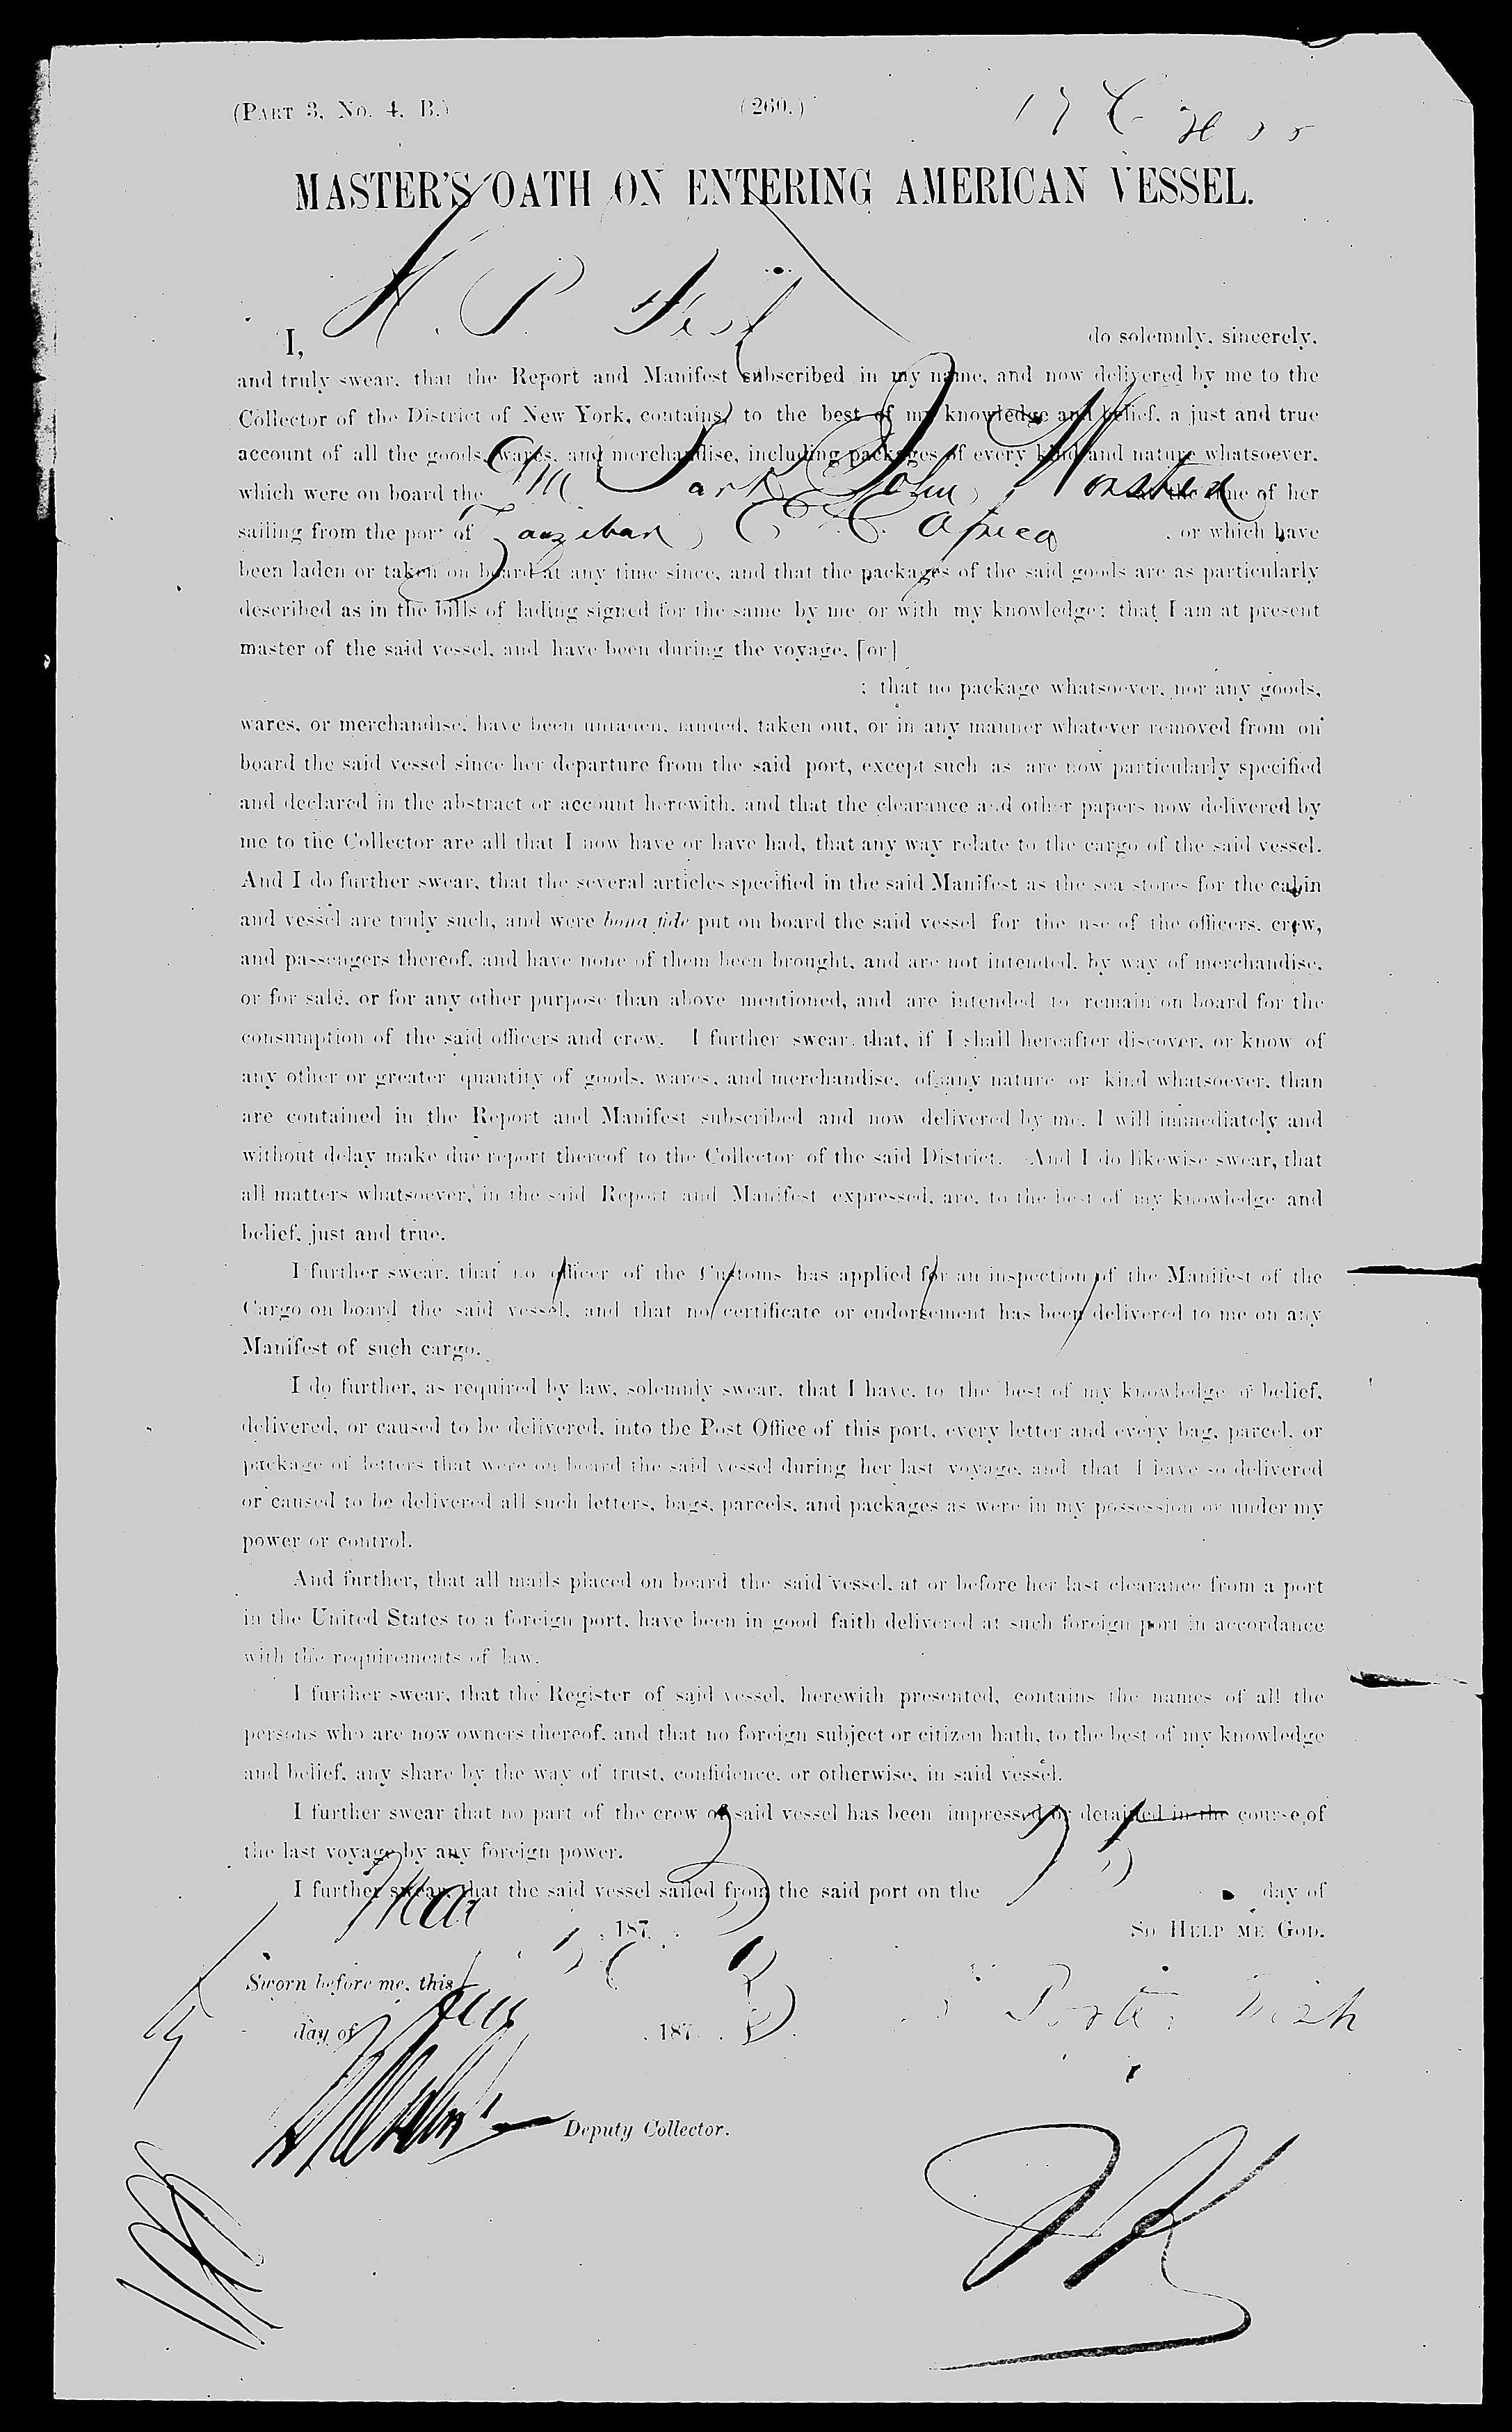 (PART 3, No. 4, B.) (260.)
MASTER'S OATH ON ENTERING AMERICAN VESSEL.
I, H. P. do solemnly, sincerely,
and truly swear, that the Report and Manifest subscribed in my name, and now delivered by me to the
Collector of the District of New York, contains, to the best of my knowledge and belief, a just and true
account of all the goods, wares, and merchandise, including packages of every kind and nature whatsoever,
which were on board the Am Bark John Worster at the time of her
sailing from the port of Zanzibar, E. C. Africa , or which have
been laden or taken on board at any time since, and that the packages of the said goods are as particularly
described as in the bills of lading signed for the same by me or with my knowledge; that I am at present
master of the said vessel, and have been during the voyage, [or]
; that no package whatsoever, nor any goods,
wares, or merchandise, have been unladen, landed, taken out, or in any manner whatever removed from on
board the said vessel since her departure from the said port, except such as are now particularly specified
and declared in the abstract or account herewith, and that the clearance and other papers now delivered by
me to the Collector are all that I now have or have had, that any way relate to the cargo of the said vessel.
And I do further swear, that the several articles specified in the said Manifest as the sea stores for the cabin
and vessel are truly such, and were bona fide put on board the said vessel for the use of the officers, crew,
and passengers thereof, and have none of them been brought, and are not intended, by way of merchandise,
or for sale, or for any other purpose than above mentioned, and are intended to remain on board for the
consumption of the said officers and crew. I further swear, that, if I shall hereafter discover, or know of
any other or greater quantity of goods, wares, and merchandise, of any nature or kind whatsoever, than
are contained in the Report and Manifest subscribed and now delivered by me, I will immediately and
without delay make due report thereof to the Collector of the said District. And I do likewise swear, that
all matters whatsoever, in the said Report and Manifest expressed, are, to the best of my knowledge and
belief, just and true.
I further swear, that no officer of the Customs has applied for an inspection of the Manifest of the
Cargo on board the said vessel, and that no certificate or endorsement has been delivered to me on any
Manifest of such cargo.
I do further, as required by law, solemnly swear, that I have, to the best of my knowledge or belief,
delivered, or caused to be delivered, into the Post Office of this port, every letter and every bag, parcel, or
package of letters that were on board the said vessel during her last voyage, and that I have so delivered
or caused to be delivered all such letters, bags, parcels, and packages as were in my possession or under my
power or control.
And further, that all mails placed on board the said vessel, at or before her last clearance from a port
in the United States to a foreign port, have been in good faith delivered at such foreign port in accordance
with the requirements of law.
I further swear, that the Register of said vessel, herewith presented, contains the names of all the
persons who are now owners thereof, and that no foreign subject or citizen hath, to the best of my knowledge
and belief, any share by the way of trust, confidence, or otherwise, in said vessel.
I further swear that no part of the crew of said vessel has been impressed or detained in the course of
the last voyage by any foreign power.
I further swear, that the said vessel sailed from the said port on the day of
Mar , 187 . SO HELP ME GOD.
Sworn before me, this
day of , 187 .
Deputy Collector.